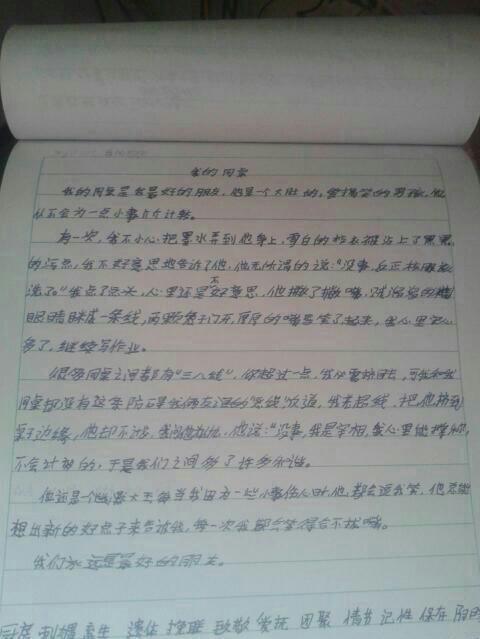 我的同桌
我的同桌是我最好的朋友,他是一个大肚的,爱搞笑的男孩,他
从不会为一点小事斤斤计较。
有一次,我不小心把墨水弄到他身上,雪白的校衣被沾上了黑黑
的污点,我不好意思地告诉了他,他无所谓的说:"没事,反正校服
洗了。"我点了点头,心里还是不好意思,他撇了撇嘴,
眼睛眯成一条线,两颗兔子门牙,厚厚的嘴唇笑了起来,我心里
多了,继续写作业。
很多同桌之间都有"三八线",你超过一点,我从要挤回去,可我和我
同桌却没有这条阻碍我俩友谊的"界线"
桌子边缘,他却不 他说:"没事,我是宰相,我心里能撑船,
不会计较的,于是我们之间多了许多和谐。
他还是个幽默大王每当我因为一些小事伤心时,他都会逗我笑,他总能
想出新的好点子来告诉我,每一次我都会笑得合不拢嘴。
我们永远是最好的朋友。
遗体 挫 致敬 爱抚 团聚 情节 记性 保存